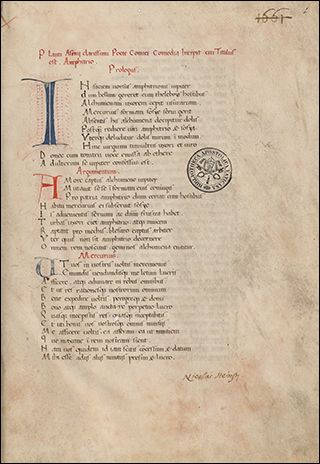 1661
Plauti Asinij clarissimi Poete Comici Comedia Incipit cui Titulus
est. Amphitrio.
Prologus.
In faciem uersus amphitrionis iupiter
dum bellum gereret cum thelebois hostibus
Alchumenam uxorem cepit usurariam
Mercurius formam sosie serui gerit
Absentis his alchumena decipitur dolis
Postquam rediere ueri amphitrio & sosia
Vterque deluduntur dolis mirum in modum
Hinc iurgium tumultus uxori & uiro
Donec cum tonitru uoce missa ab ethere
Adulterum se iupiter confessus est.
Argumentum.
Amore captus alchumene iupiter
Mutauit sese in formam eius coniugis
Pro patria amphitrio dum cernit cum hostibus
Habitu mercurius ei subseruit sosie
Is aduenientis seruum ac dominum frustra habet
Turbas uxori ciet amphitrio atque inuicem
Raptant pro moechis. blefaro captus arbiter
Vter sit non quit amphitrio decernere
Omnem rem noscunt. geminos alchumena enititur.
Mercurius.
Vt uos in uestris uoltis mercimoniis
Emundis uendundisque me letum lucris
Afficere, atque adiuuare in rebus omnibus
Et ut res rationesque uestrorum omnium
Bene expedire uoltis peregreque & domi
Bonoque atque amplo auctare perpetuo lucro
Quasque incepistis res quasque inceptabitis
Et uti bonis uos uestrosque omnis nuntiis
Me afficere uoltis. ea afferam ea uti nuntiem
Que maxime in rem uostram sient
Nam uos quidem id iam scitis concessum & datum
Mihi esse ab dis aliis nuntiis presim & lucro.
Nicolai Heinsij